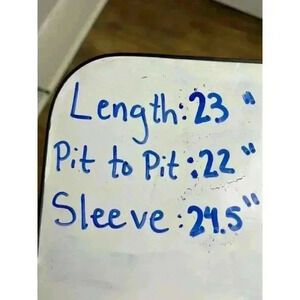 Length: 23"
Pit to Pit: 22"
Sleeve: 24.5"